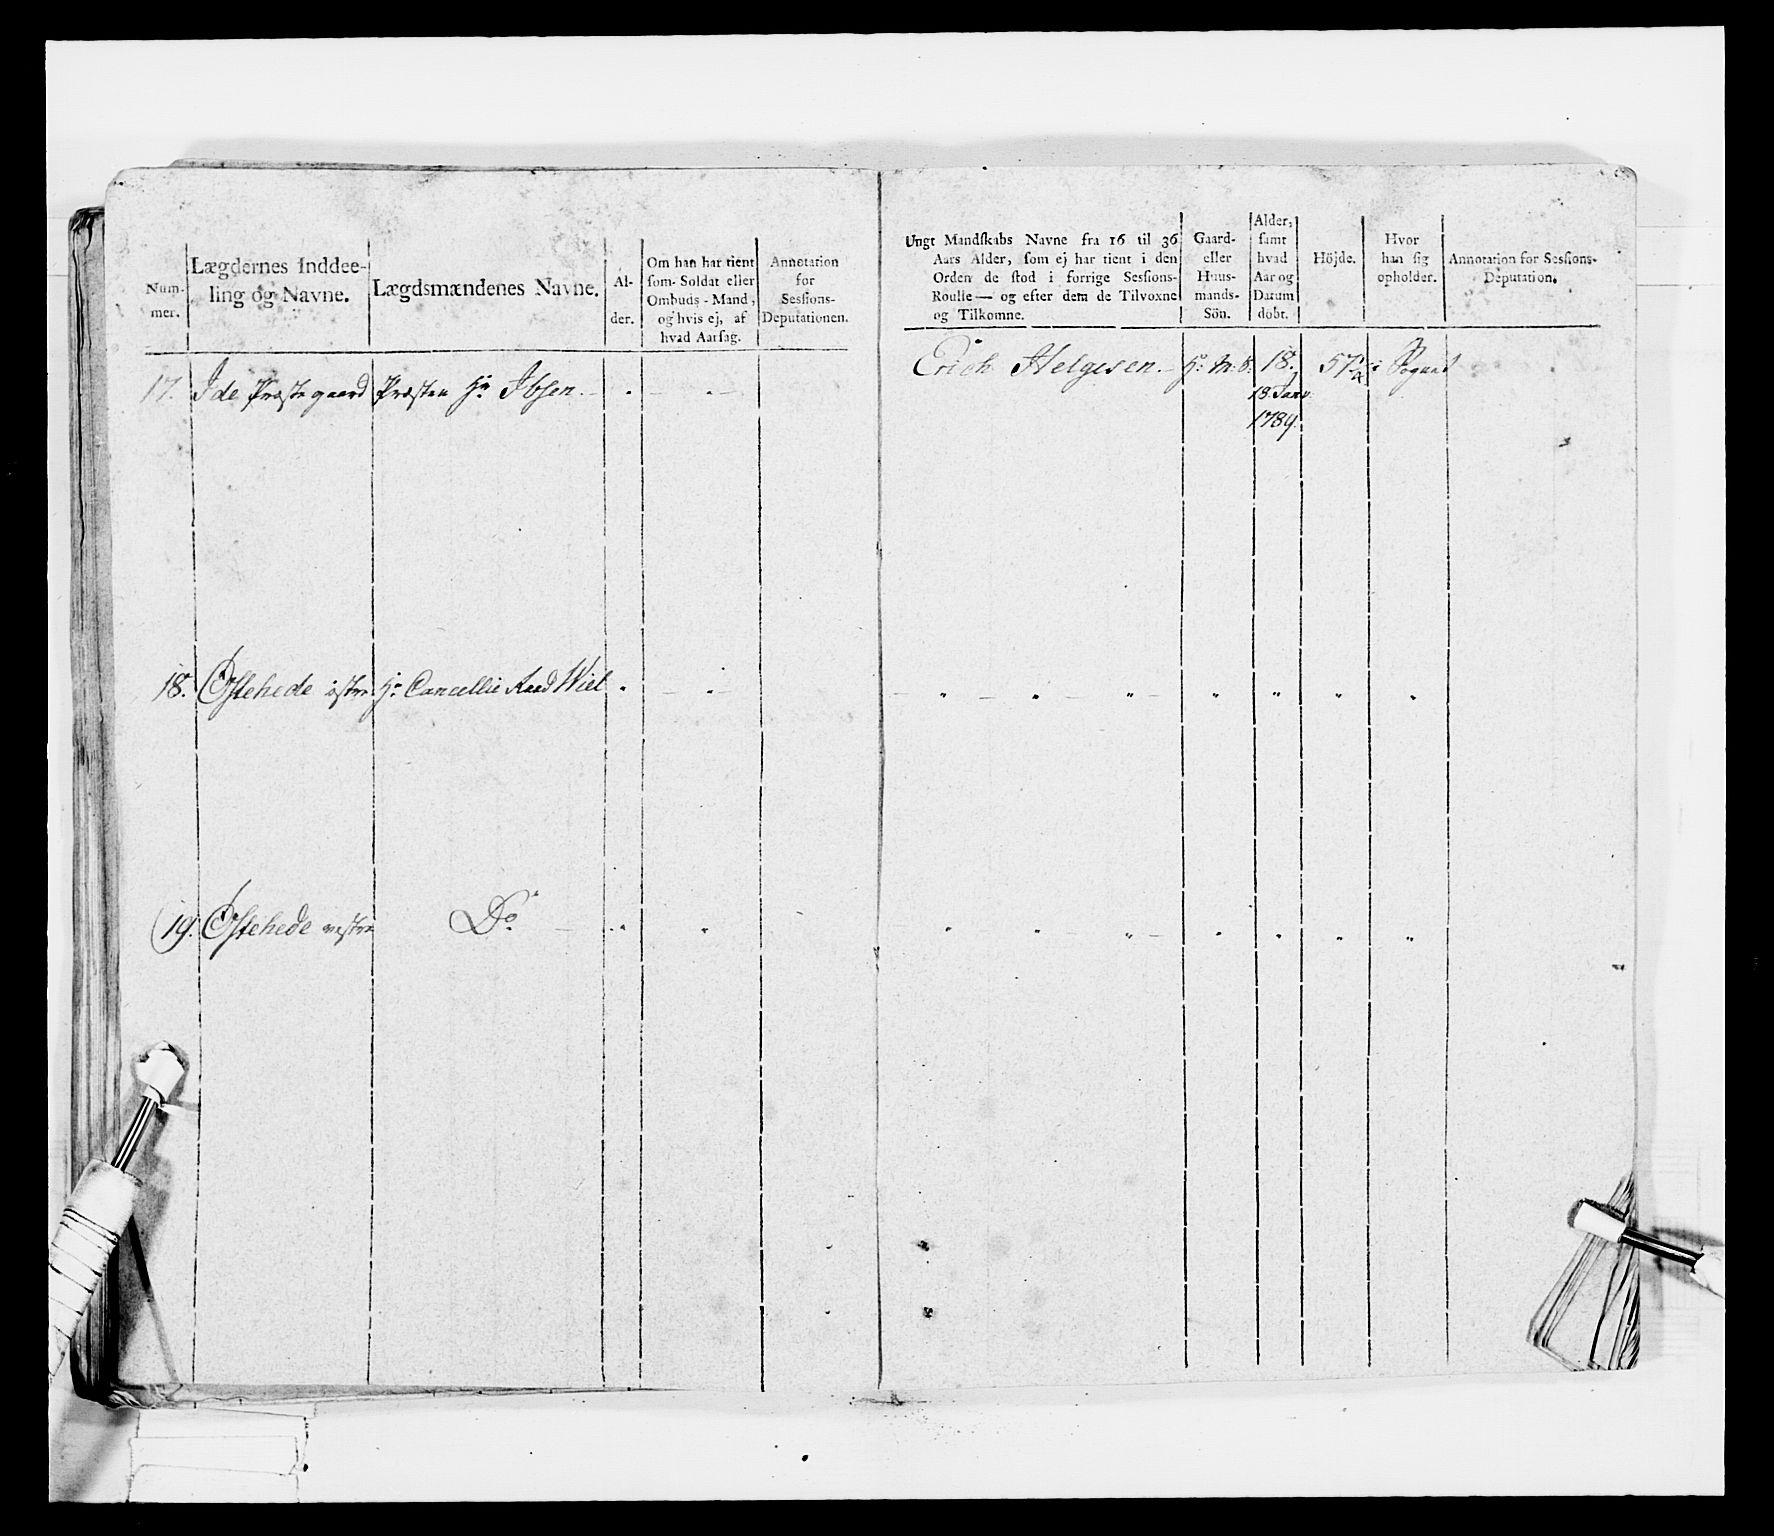 Num-
mer.
Lægdernes Inddee-
ling og Navne.
Lægdsmændenes Navne.
Al-
der.
Om han har tient
som Soldat eller
Ombuds-Mand,
og hvis ej, af
hvad Aarsag.
Annotation
for
Sessions-
Deputationen.
17. Ide Præstegaard Præsten Hr Ibsen.
18. Ostehede østre Hr Cancellie Raad Wiel
19. Ostehede vestre Do
Ungt Mandskabs Navne fra 16 til 36
Aars Alder, som ej har tient i den
Orden de stod i forrige Sessions-
Roulle — og efter dem de Tilvoxne
og Tilkomne.
Gaard-
eller
Huus-
mands-
Sön.
Alder,
samt
hvad
Aar og
Datum
döbt.
Höjde.
Hvor
han sig
opholder.
Annotation for Sessions-
Deputation.
Erich Helgesen. H: M: S. 18. 57 1/2 i Sognet
18 Janv
1789.